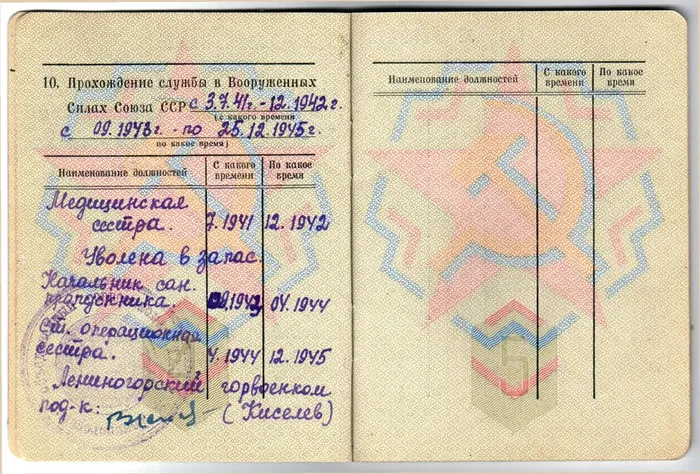 10. Прохождение службы в Вооруженных
Силах Союза ССР с 3.7.41г. - 12.1942г.
(с какого времени
с 09.1943г. - по 25.12.1945г.
по какое время)
Наименование должностей С какого времени По какое время
Медицинская
сестра. 7.1941 12.1942
Уволена в запас.
Начальник сан.
пропускника. 09.1943 04.1944
Ст. операционная
сестра. 4.1944 12.1945
Лениногорский горвоенком
под-к: (Киселев)
Наименование должностей С какого времени По какое время